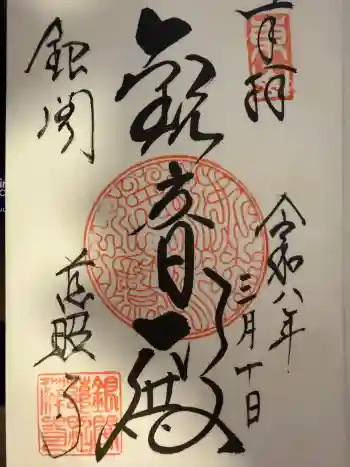 奉拝
令和八年
三月十日
観音殿
銀閣
慈照寺